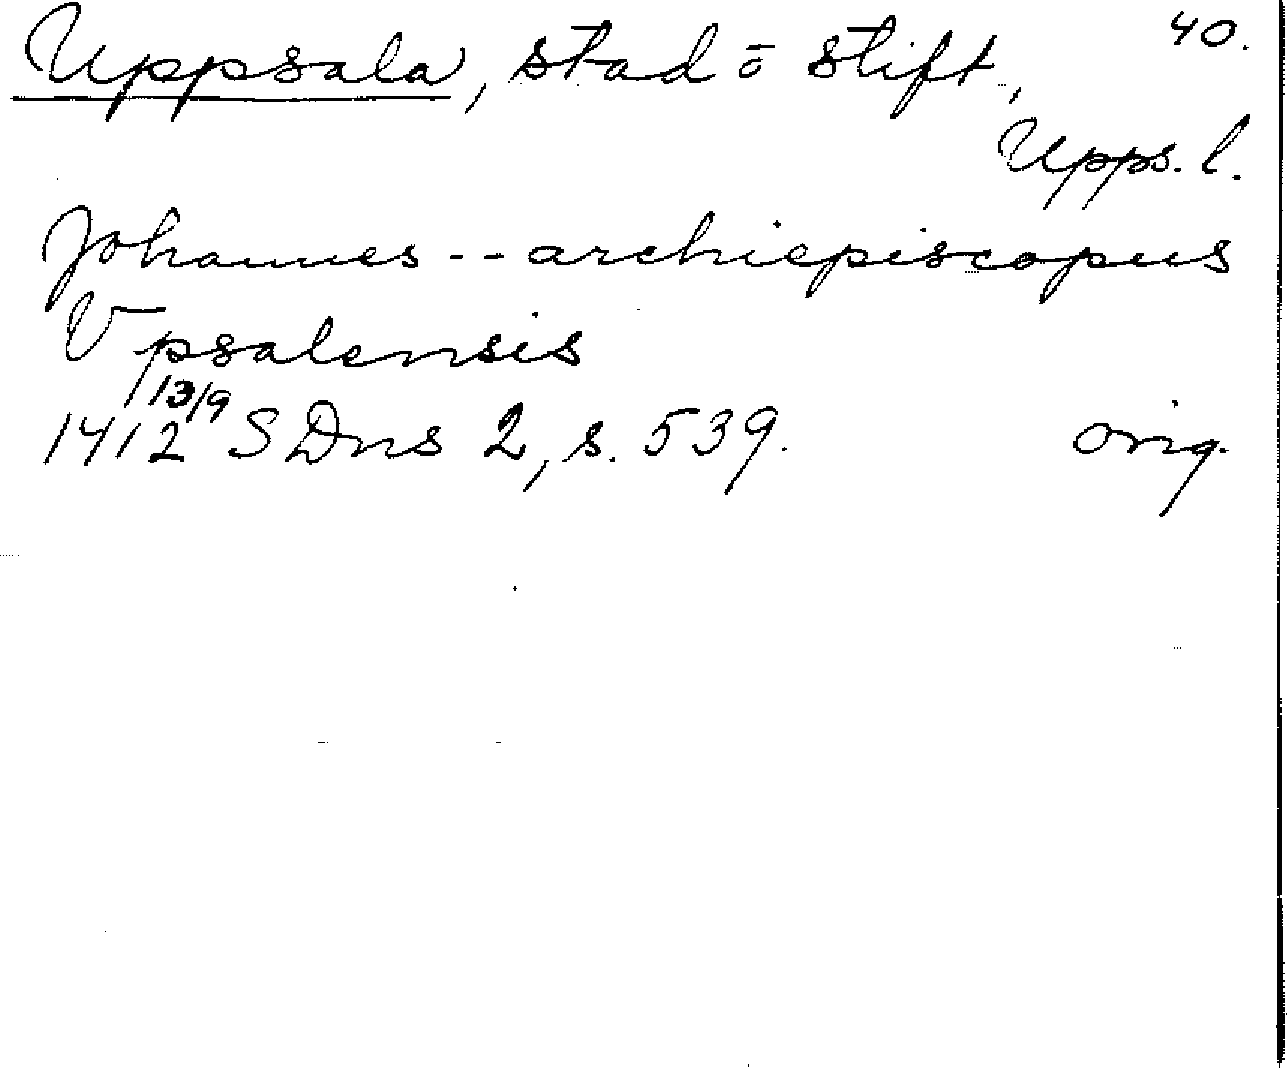 40.
Uppsala, stad ō stift,
Upps. l.
Johannes -- archiepiscopus
Vpsalensis
1412 13/9 SDns 2, s. 539. orig.